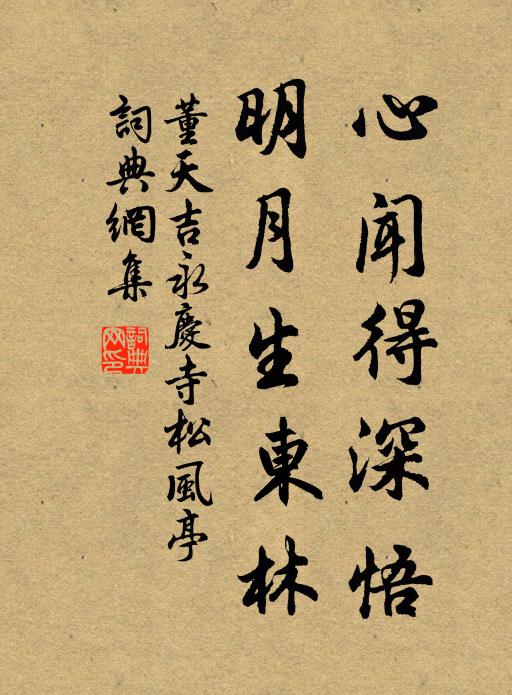 心闻得深悟
明月生東林
董天吉永慶寺松風亭
詞典網集
詞典網印